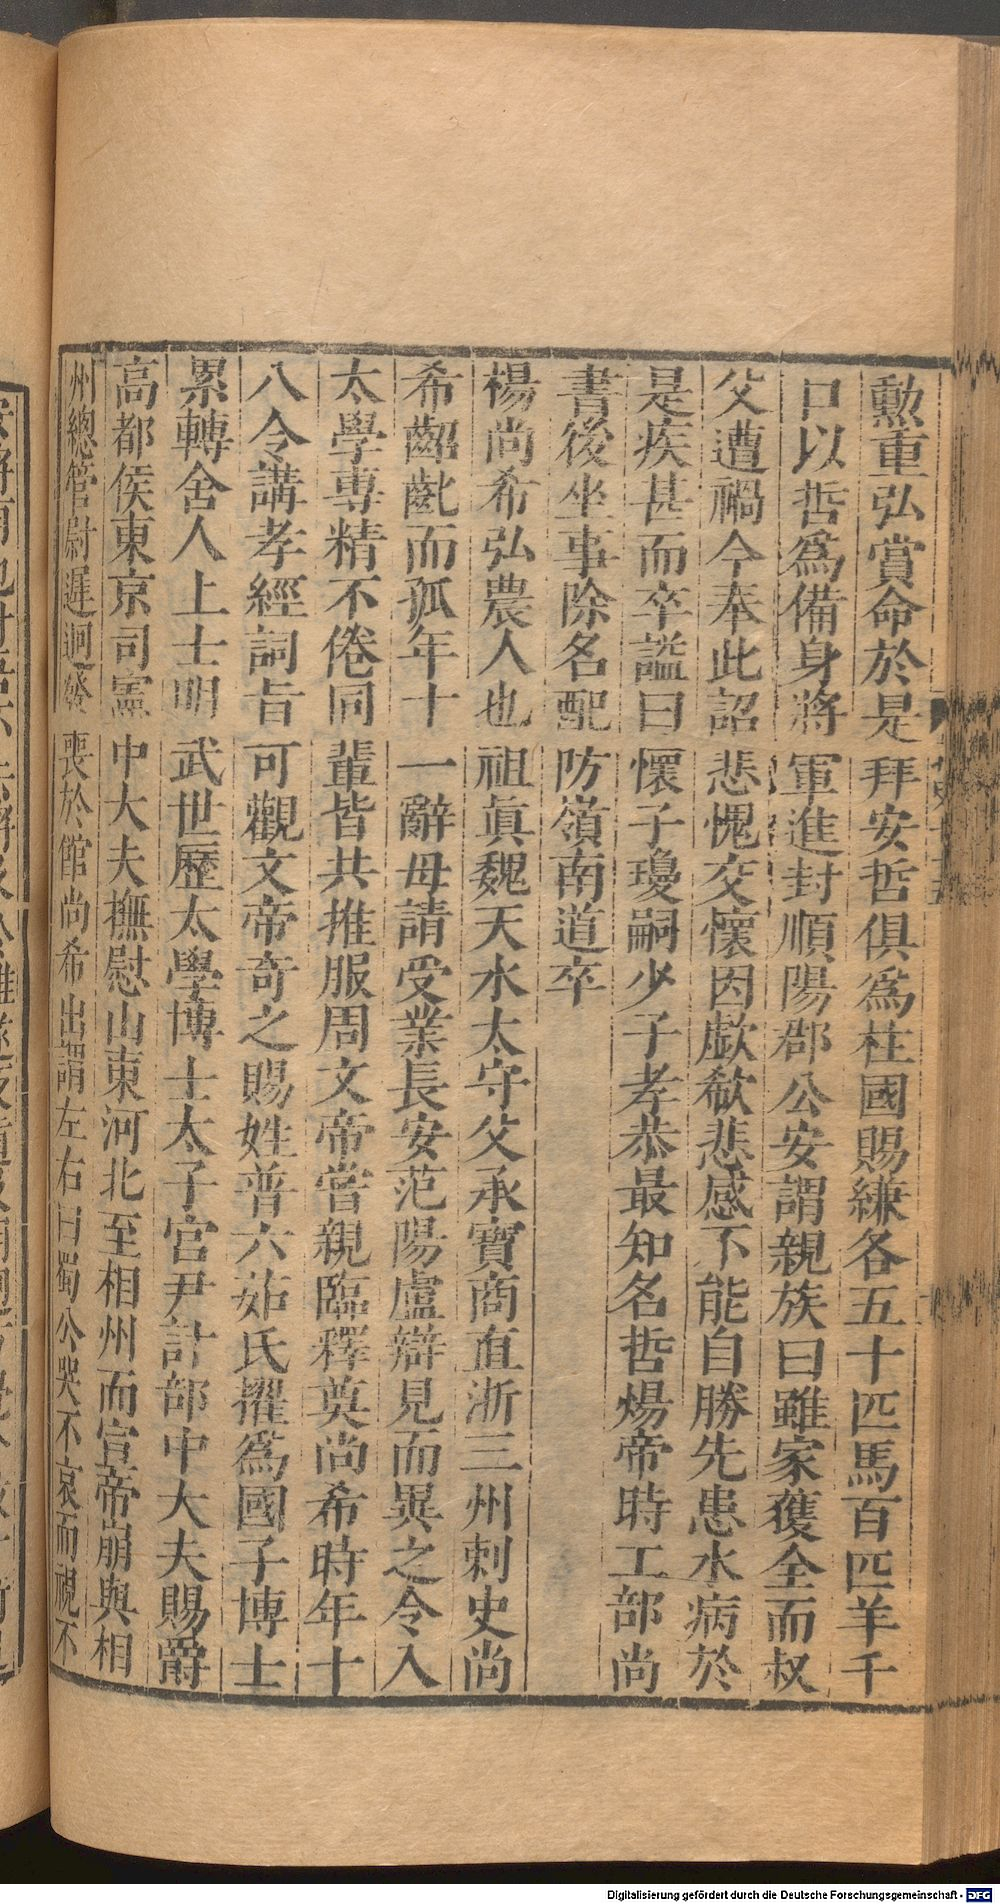 勲重弘賞命於是拜安哲俱爲柱國賜縑各五十匹馬百匹羊千
口以哲爲備身將軍進封順陽郡公安謂親族曰雖家獲全而叔
父遭禍今奉此詔悲愧交懷因歔欷悲感不能自勝先患水病於
是疾甚而卒謚曰懷子瓊嗣少子孝恭最知名哲煬帝時工部尚
書後坐事除名配防嶺南道卒
楊尚希弘農人也祖眞魏天水太守父承寶商直浙三州刺史尚
希齠齔而孤年十一辭母請受業長安范陽盧辯見而異之令入
太學專精不倦同輩皆共推服周文帝嘗親臨釋奠尚希時年十
八令講孝經詞旨可觀文帝奇之賜姓普六茹氏擢爲國子博士
累轉舍人上士明武世歷太學博士太子宮尹計部中大夫賜爵
高都侯東京司憲中大夫撫慰山東河北至相州而宣帝崩與相
州總管尉遲迥發喪於館尚希出謂左右曰蜀公哭不哀而視不
Digitalisierung gefördert durch die Deutsche Forschungsgemeinschaft - DFG